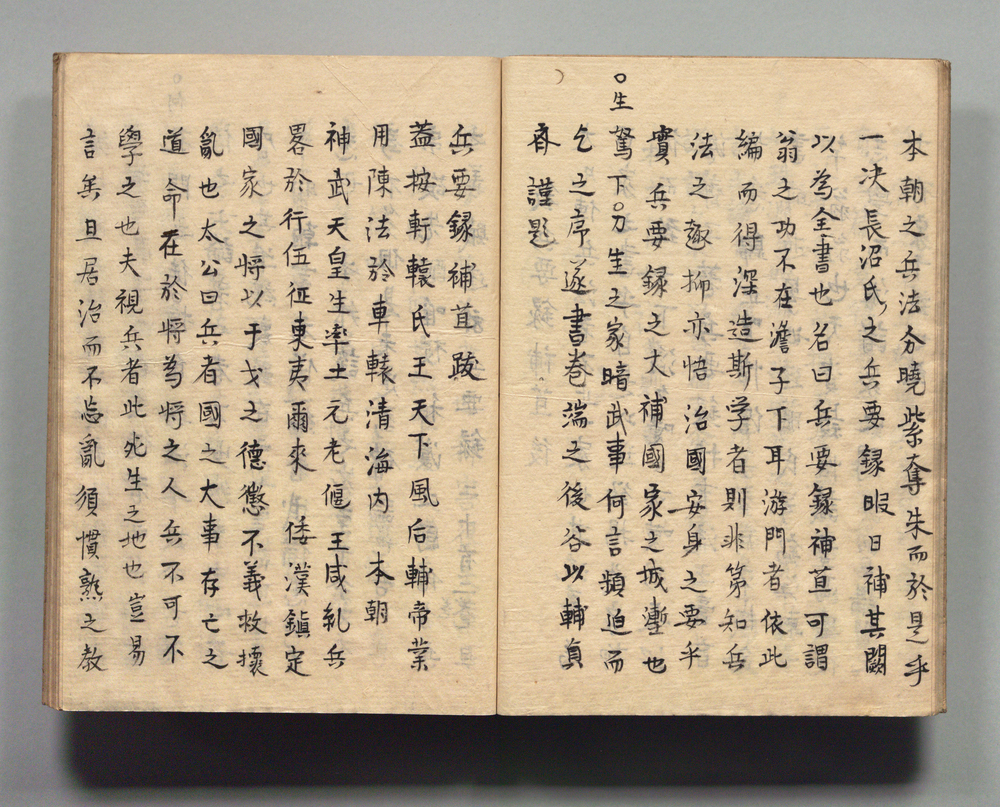 本朝之兵法分曉紫奪朱而於是乎
一決長沼氏之兵要録暇日補其闕
以為全書也名曰兵要録補苴可謂
翁之功不在澹子下耳游門者依此
編而得深造斯学者則非第知兵
法之趣抑亦悟治國安身之要乎
實兵要録之大補國家之城塹也
○生
駑下○刀生之家暗武事何言頻迫而
乞之序遂書巻端之後谷以輔真
斉謹題
兵要録補苴跋
蓋按軒轅氏王天下風后輔帝業
用陳法於車轅清海内本朝
神武天皇生率土元老偃王咸乱兵
畧於行伍征東夷爾來倭漢鎮定
國家之將以于戈之德懲不義救壊
亂也太公曰兵者國之大事存亡之
道命在於將為將之人兵不可不
學之也夫視兵者此死生之地也豈易
言矣且居治而不忘亂須慣熟之教